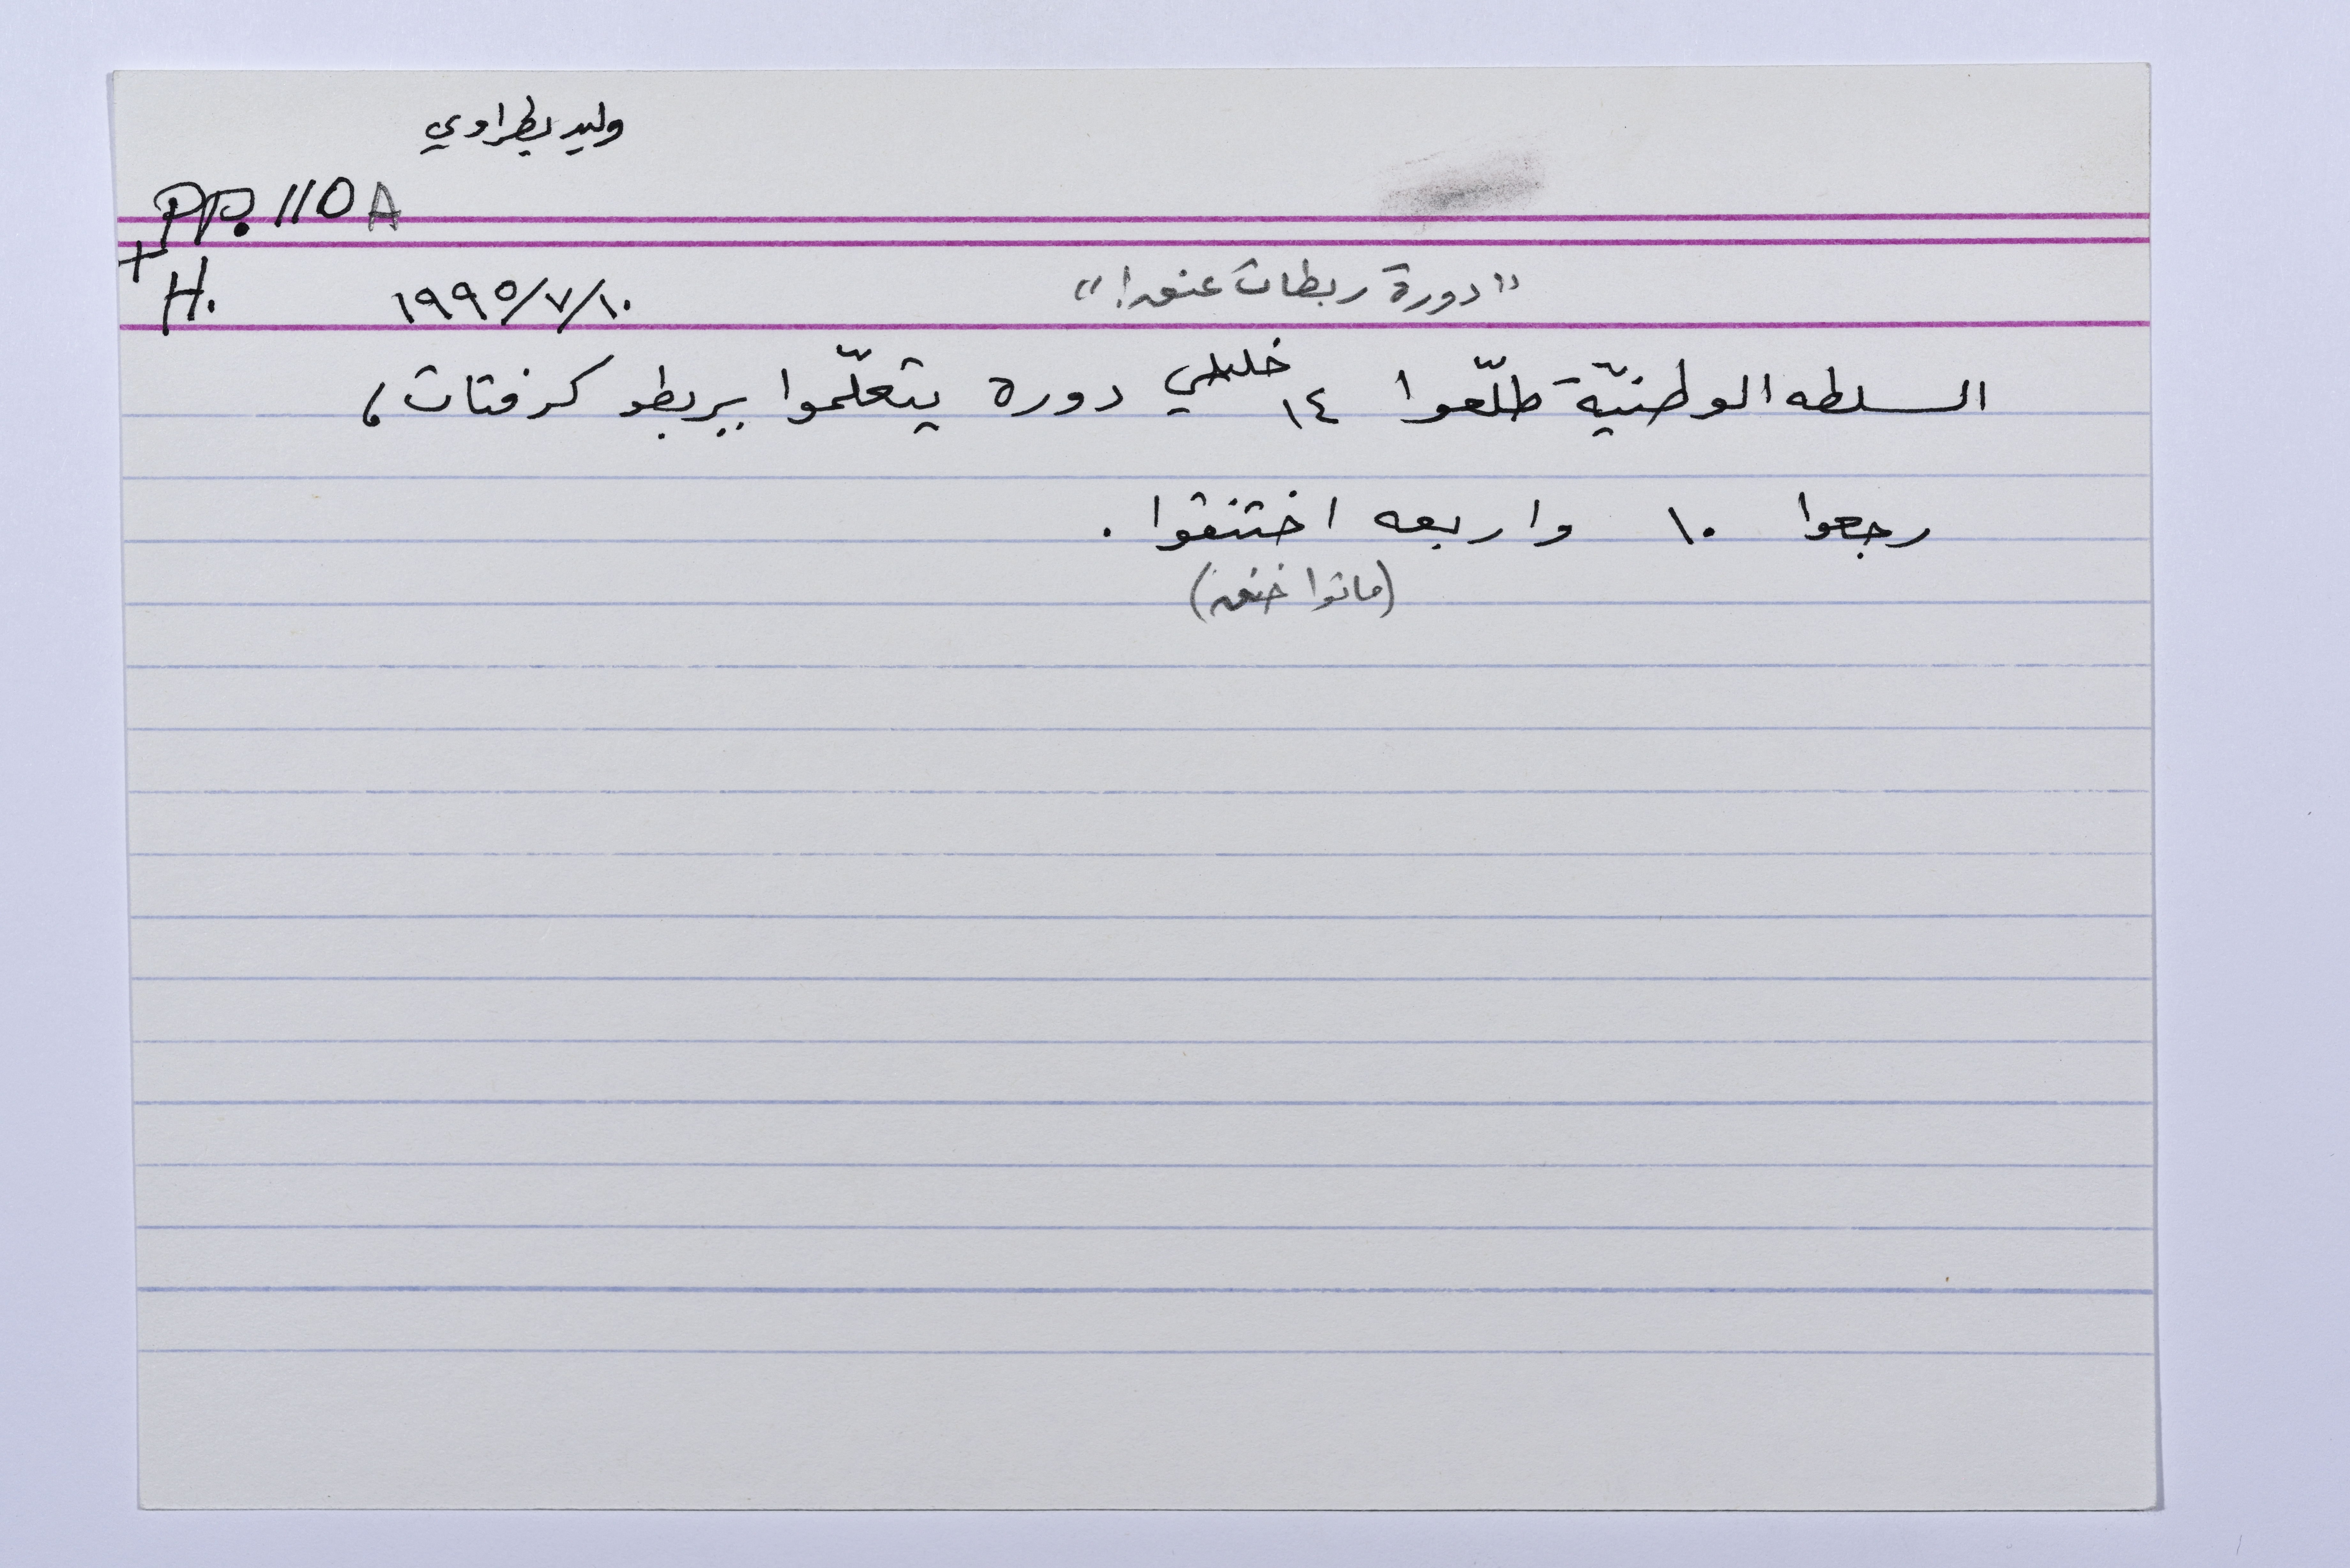 وليد بطراوي
PP. 110 A
+
H. ١٩٩٥/٧/١٠ "دورة ربطات عنق!"
السلطه الوطنيّة طلّعوا ١٤ خليلي دورة يتعلّموا يربطو كرفتات،
رجعوا ١٠ واربعه اختنقوا.
(ماتوا خنق)